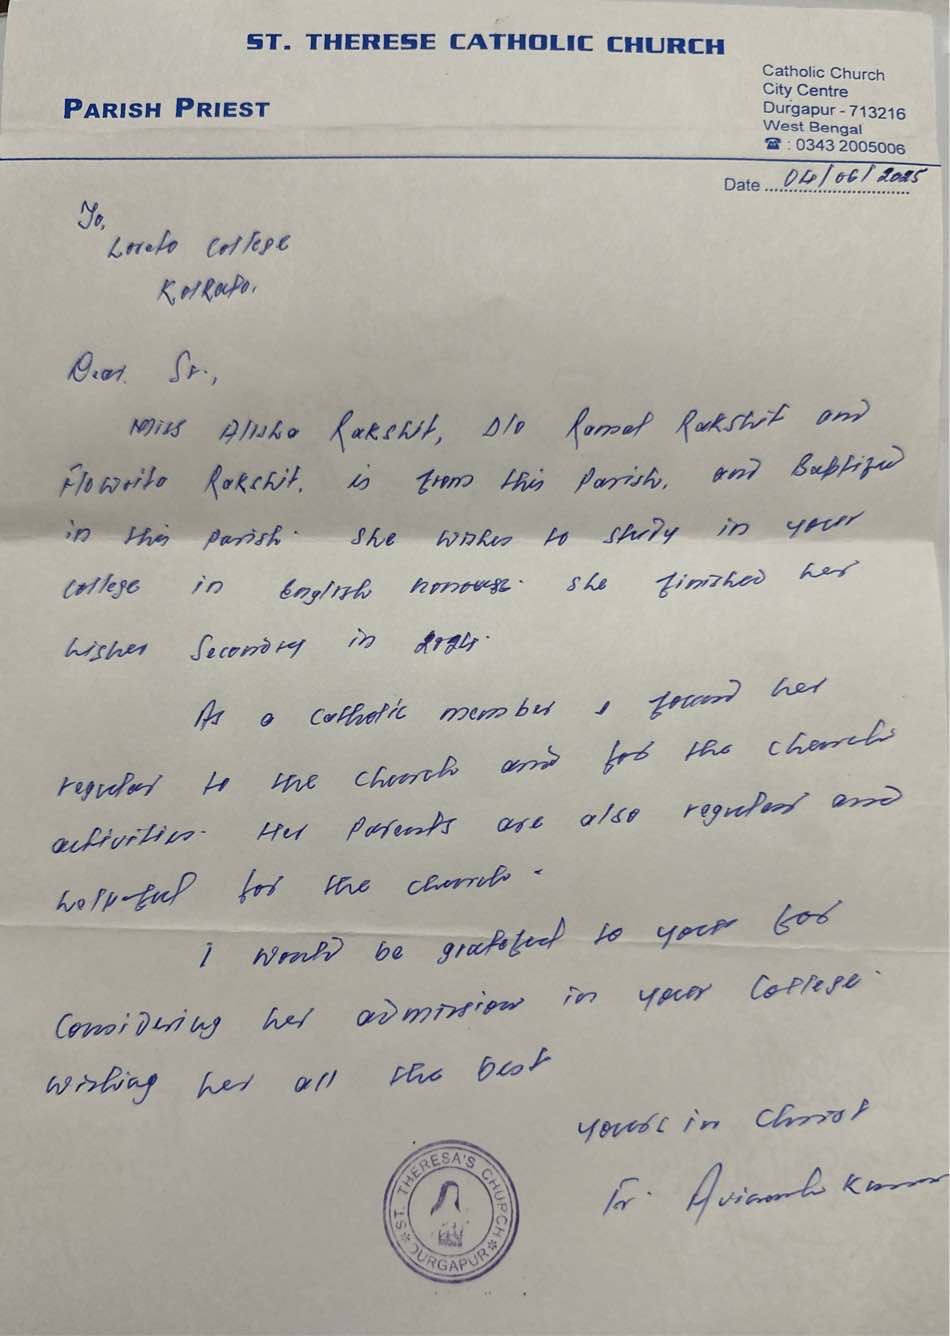 ST. THERESE CATHOLIC CHURCH
PARISH PRIEST
Catholic Church
City Centre
Durgapur - 713216
West Bengal
☎ : 0343 2005006
Date 04/06/2025
To,
Loreto College
Kolkata.
Dear Sr.,
Miss Alisha Rakshit, D/o Kamal Rakshit and
Rakshit, is from this Parish, and Baptized
in this parish. She wishes to study in your
College in English honours. She finished her
higher Secondary in 2024.
As a catholic member I found her
regular to the church and for the church
activities. Her Parents are also regular and
helpful for the church.
I would be grateful to your for
Considering her admission in your College.
Wishing her all the best
Yours in Christ
Fr. Kumar
ST. THERESA'S CHURCH
DURGAPUR